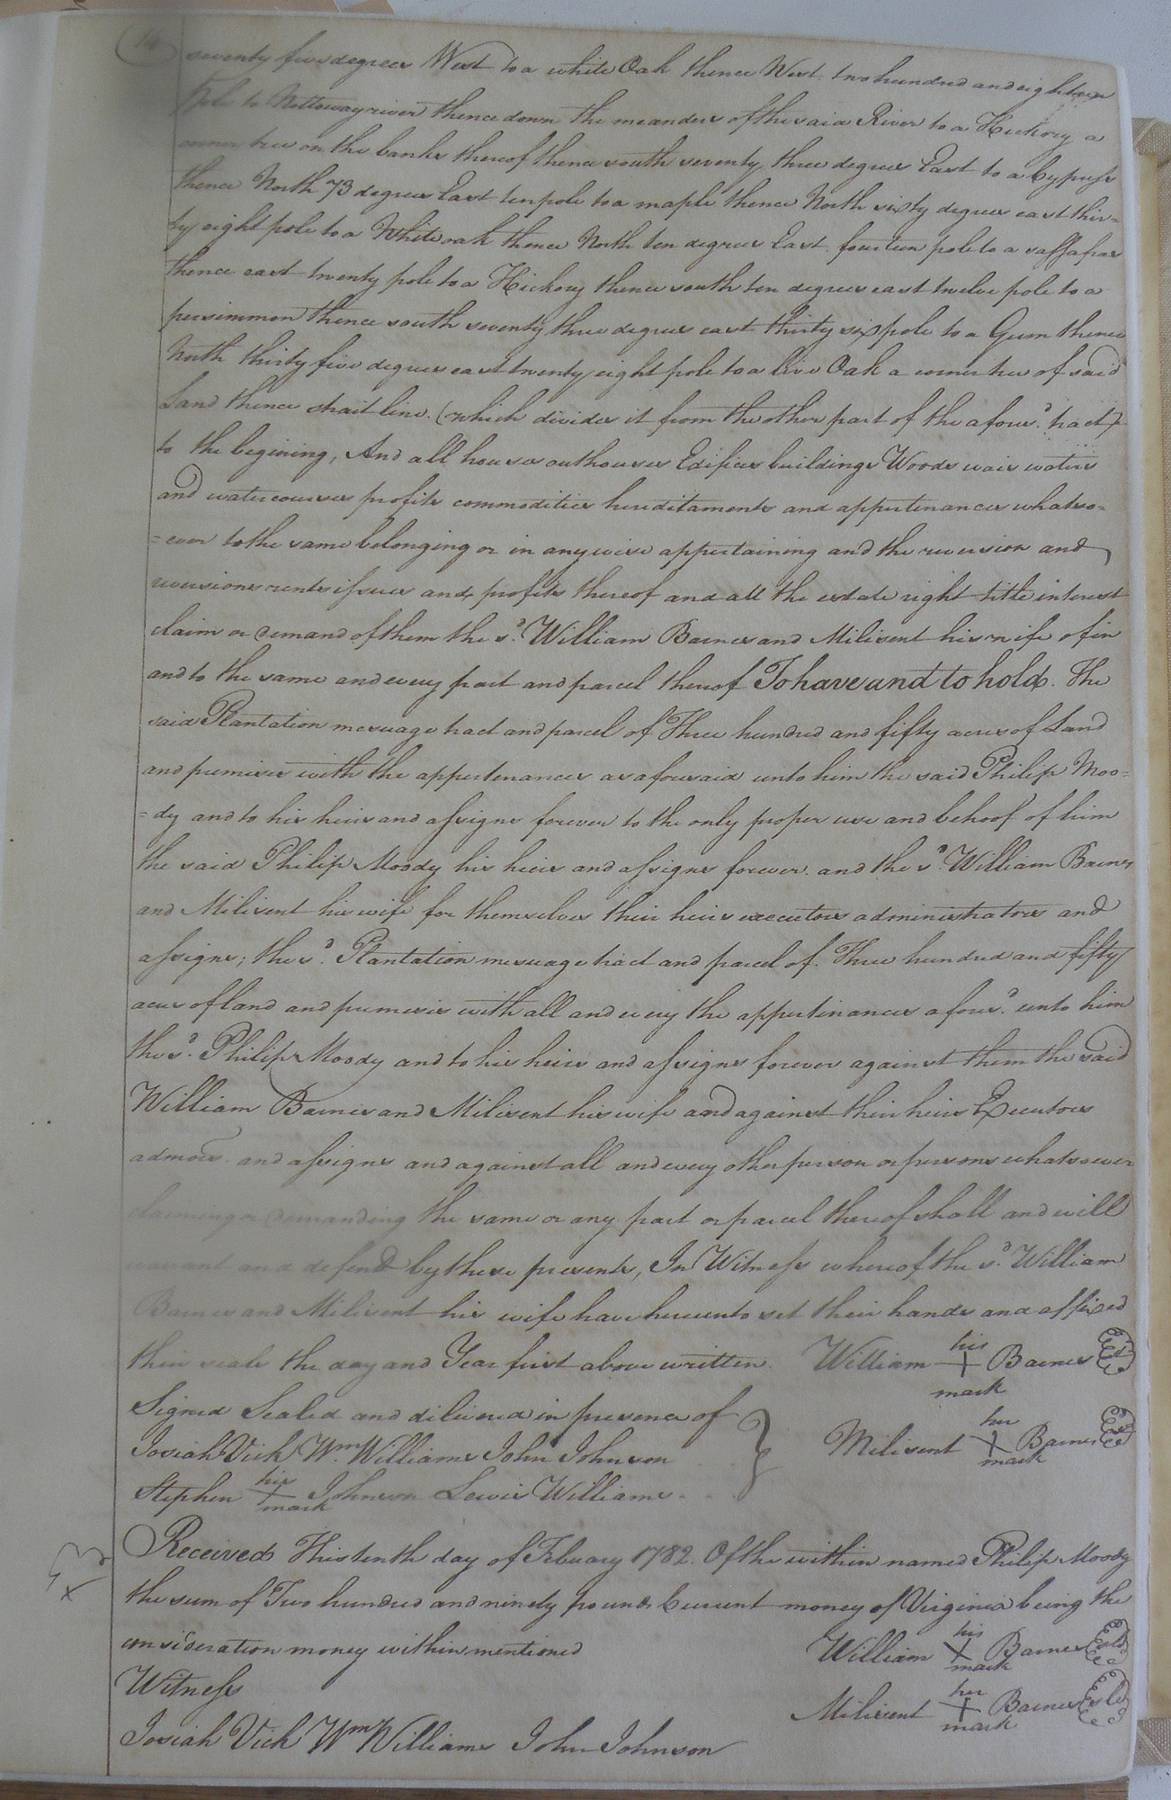 14
seventy five degrees West to a white Oak thence West two hundred and eighteen
pole to Nottoway river thence down the meanders of the said River to a Hickory a
corner tree on the banks thereof thence south seventy three degrees East to a Cypress
thence North 73 degrees East ten pole to a maple thence North sixty degrees east thir=
ty eight pole to a White oak thence North ten degrees East fourteen pole to a sassafras
thence east twenty pole to a Hickory thence south ten degrees east twelve pole to a
persimmon thence south seventy three degrees east thirty six pole to a Gum thence
North thirty five degrees east twenty eight pole to a live Oak a corner tree of said
Land thence strait line (which divides it from the other part of the afores.d tract)
to the begining, And all houses outhouses Edifices buildings Woods wais waters
and watercourses profits commodities hereditaments and appertenances whatso=
=ever to the same belonging or in any wise appertaining and the reversion and
reversions rents issues and profits thereof and all the estate right title interest
claim or demand of them the s.d William Barnes and Milisent his wife of in
and to the same and every part and parcel thereof To have and to hold. The
said Plantation mesuage tract and parcel of Three hundred and fifty acres of Land
and premises with the appertenances as aforesaid unto him the said Philip Moo=
=dy and to his heirs and assigns forever to the only proper use and behoof of him
the said Philip Moody his heirs and assigns forever. and the s.d William Barnes
and Milisent his wife for themselves their heirs executors administrators and
assigns; the s.d Plantation mesuage tract and parcel of Three hundred and fifty
acres of land and premises with all and every the appertinances afores.d unto him
the s.d Philip Moody and to his heirs and assigns forever against them the said
William Barnes and Milisent his wife and against their heirs Executors
admors. and assigns and against all and every other person or persons whatsoever
claiming or demanding the same or any part or parcel thereof shall and will
warrant and defend by these presents, In Witness whereof the s.d William
Barnes and Milisent his wife have hereunto set their hands and affixed
their seals the day and Year first above written. William his + mark Barnes
Signed Sealed and delivered in presence of
Milisent her + mark Barnes
Josiah Vick Wm. Williams John Johnson
Stephen his + mark Johnson Lewis Williams.
Received This tenth day of Febuary 1782. Of the within named Philip Moody
the sum of Two hundred and ninety pounds Current money of Virginia being the
consideration money within mentioned William his + mark Barnes
Witness
Milisent her + mark Barnes
Josiah Vick Wm Williams John Johnson